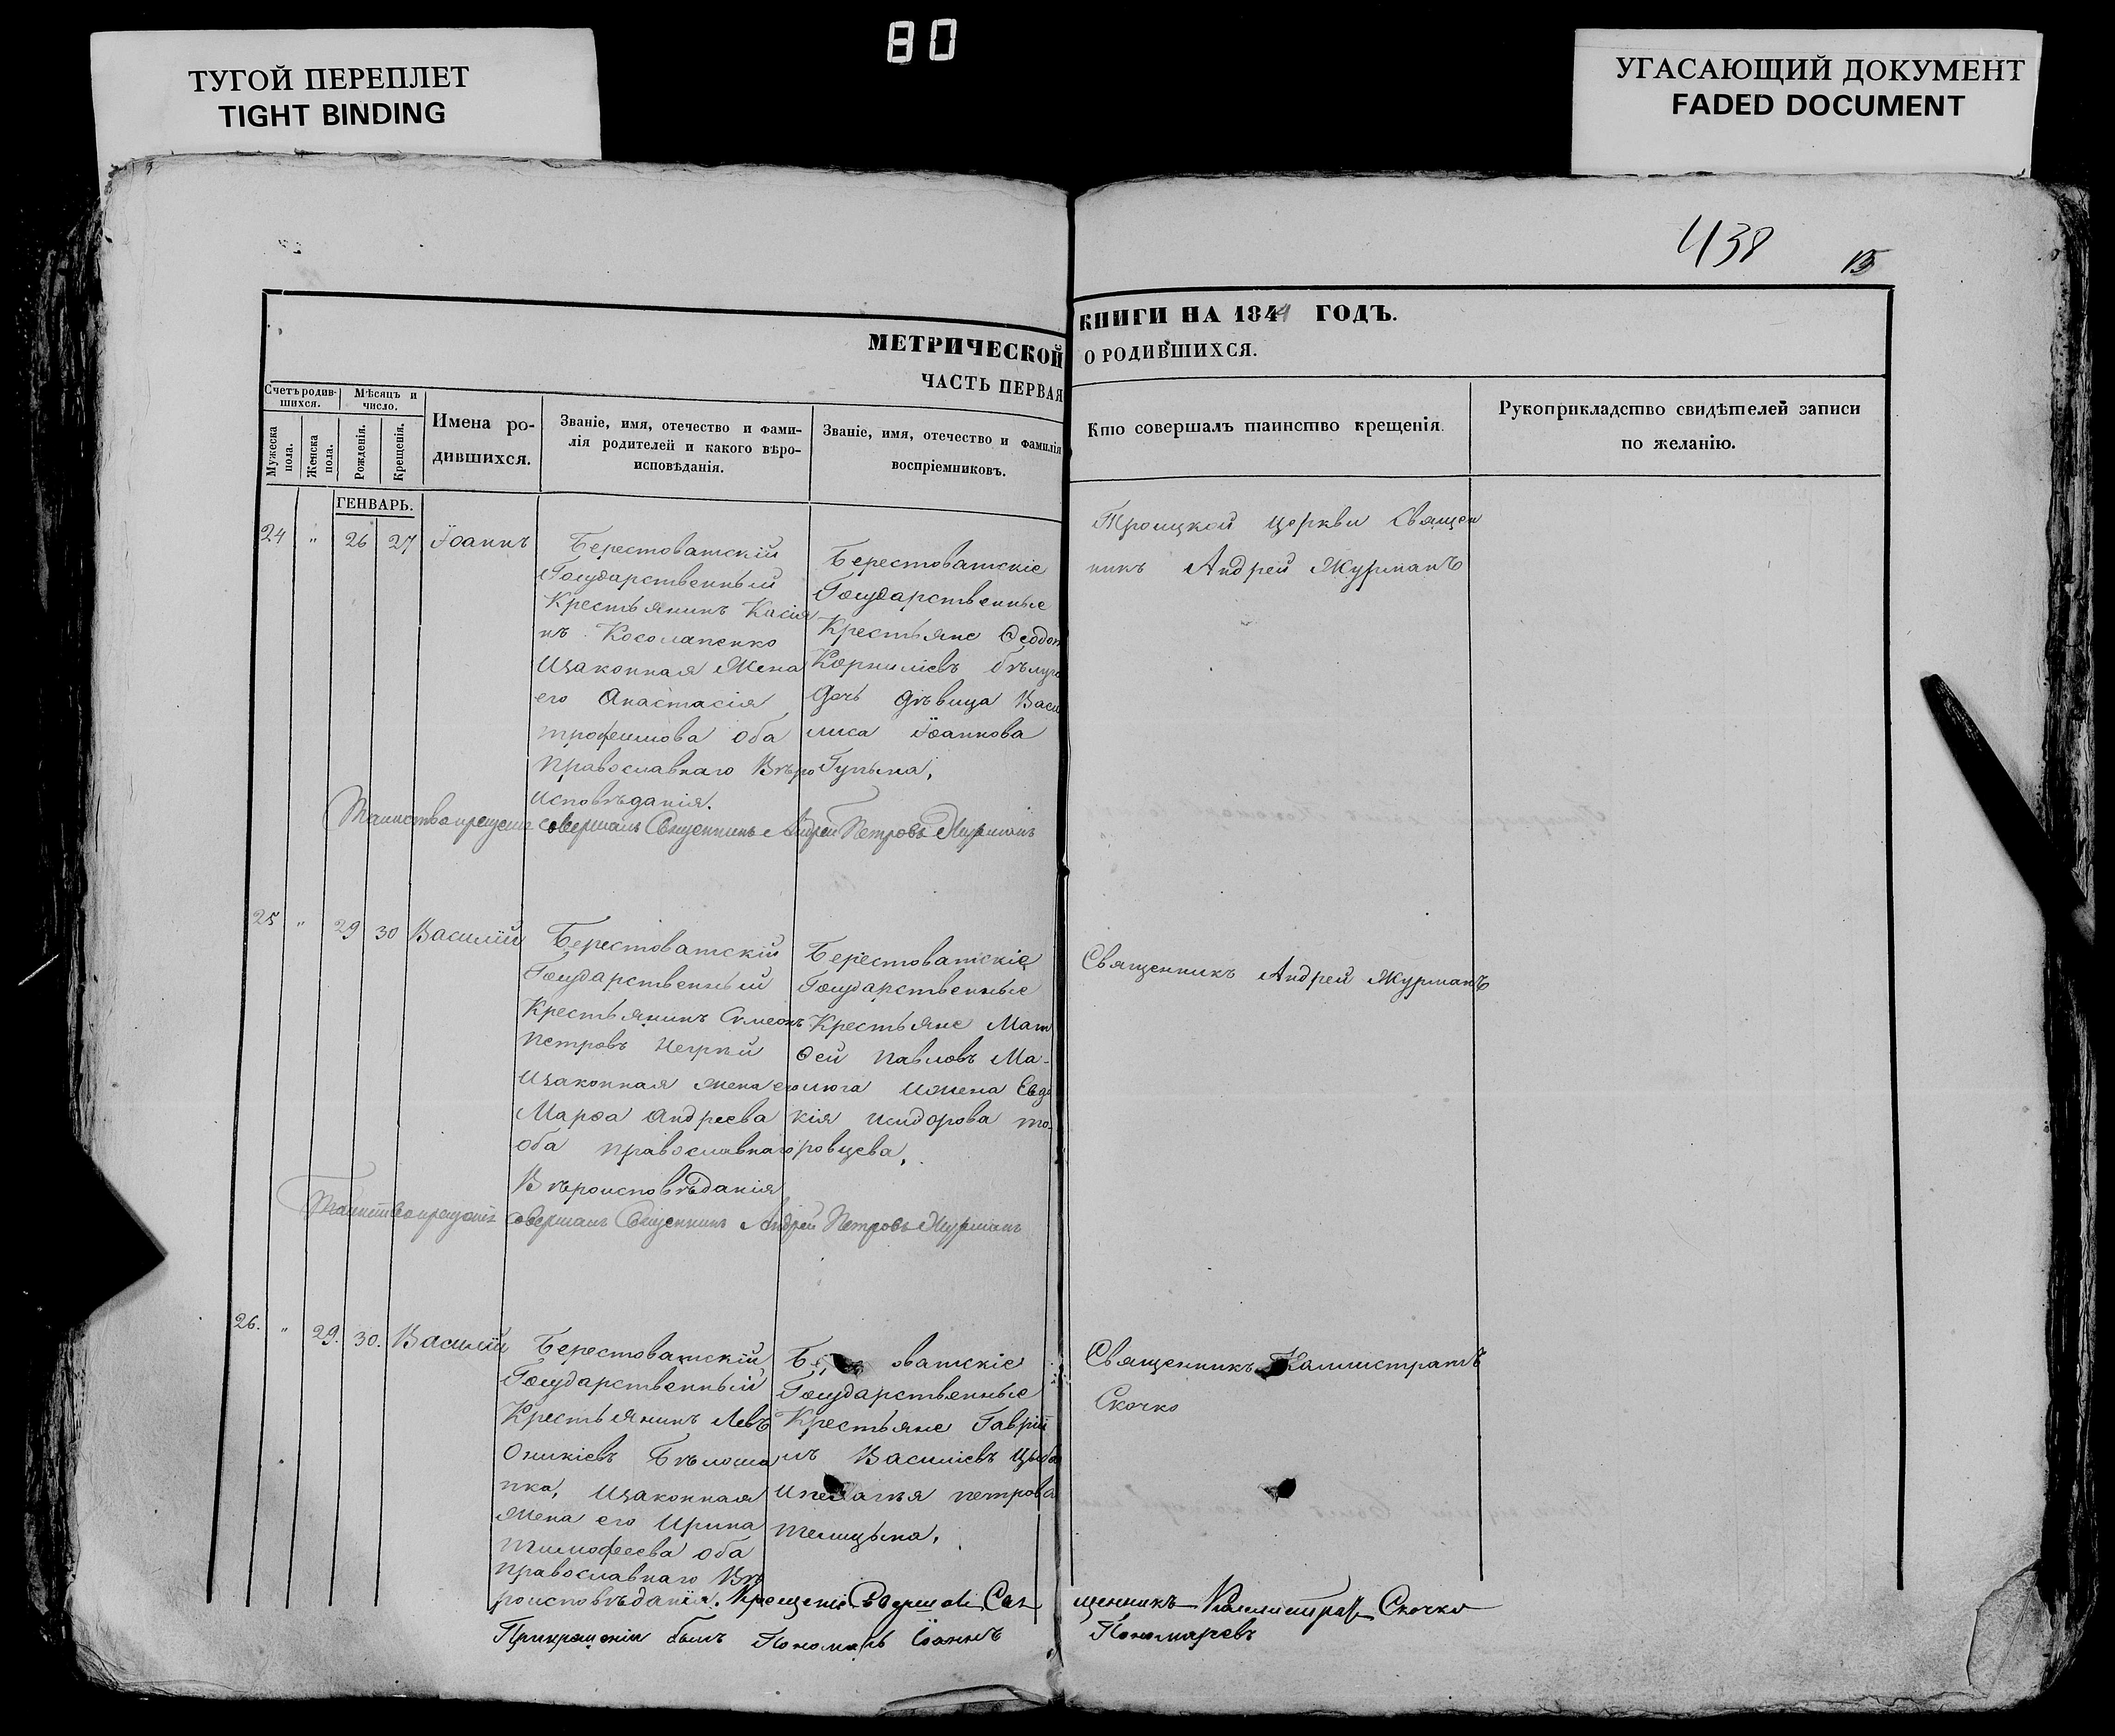 80
ТУГОЙ ПЕРЕПЛЕТ
TIGHT BINDING
УГАСАЮЩИЙ ДОКУМЕНТ
FADED DOCUMENT
438
15
МЕТРИЧЕСКОЙ
ЧАСТЬ ПЕРВАЯ
КНИГИ НА 1844 ГОДЪ.
О РОДИВШИХСЯ.
Счетъ родив-
шихся.
Мѣсяцъ и
число.
Мужеска
пола.
Женска
пола.
Рожденія.
Крещенія.
Имена ро-
дившихся.
Званіе, имя, отечество и фами-
лія родителей и какого вѣро-
исповѣданія.
Званіе, имя, отечество и фамилія
воспріемниковъ.
Кто совершалъ таинство крещенія.
Рукоприкладство свидѣтелей записи
по желанію.
ГЕНВАРЬ.
24 " 26 27 Іоаннъ
Берестоватскій
Государственный
Крестьянинъ Касія
нъ Косолапенко
Изаконная Жена
его Анастасія
трофимова оба
православнаго Вѣро
исповѣданія.
Берестоватскіе
Государственные
Крестьяне Ѳеодот
Корниліевъ бѣлуха
Дочь дѣвица Васи
лиса Іоаннова
Гупына,
Троицкой церкви Священ
никъ Андрей Журманъ
Таинство крещенія совершалъ Священникъ Андрей Петровъ Журманъ
25 " 29 30 Василій
Берестоватскій
Государственный
Крестьянинъ Симеонъ
петровъ
Изаконная жена его
Марѳа андреева
оба православнаго
Вѣроисповѣданія
Берестоватскіе
Государственные
Крестьяне Мат
ѳей павловъ Ма-
люга Ижена Евдо
кія исидорова то-
ровцева,
Священникъ Андрей Журманъ
Таинство крещенія совершалъ Священникъ Андрей Петровъ Журманъ
26. " 29. 30. Василій
Берестоватскій
Государственный
Крестьянинъ Левъ
Оникіевъ Бѣлоша
пка, Изаконная
Жена его Ирина
тимофеева оба
православнаго Вѣ
роисповѣданія.
Бе оватскіе
Государственные
Крестьяне Гаврії
лъ Василіевъ Цыба
Ипелагія петрова
телицына,
Священникъ Каллистратъ
Скочко
Крещеніе Совершалъ Свя щенникъ Каллистратъ Скочко
При крещеніи былъ Пономарь Іоаннъ Пономаревъ